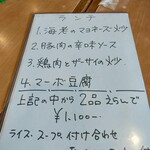 ランチ
1. 海老のマヨネーズ炒
2. 豚肉の辛味ソース
3. 鶏肉とザーサイの炒
4. マーボ豆腐
上記の中から2品えらんで
¥1,100-
ライス・スープ付け合わせ